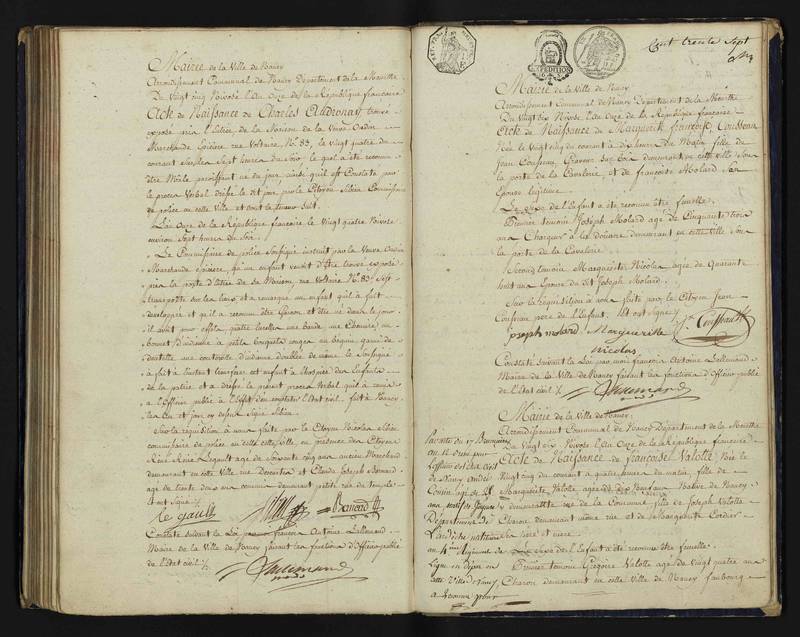 Mairie de la Ville de Nancy
Arrondissement Communal de Nancy Département de la Meurthe
Du vingt cinq Nivose l'An Onze de la République française
Acte de Naissance de Charles Audronay, trouvé
exposé près l'entrée de la Maison de la Veuve
Marchande Epicière rue Voltaire N.º 83, le vingt quatre du
courant Sept heures du Soir, lequel a été reconnu
être Mâle paroissant né du jour ainsi qu'il est Constaté par
le procès Verbal dressé le dit jour, par le Citoyen Commissaire
de police en cette ville et dont la teneur suit.
L'An Onze de la République française le Vingt quatre Nivose
environ Sept heures du Soir.
Le Commissaire de police Soussigné instruit par la Veuve
Marchande épicière, qu'un enfant venoit d'Être trouvé exposé
près la porte d'entrée de Sa Maison rue Voltaire N.º 83, S'est
transporté sur les lieux et a remarqué un enfant qu'il a fait
développer et qu'il a reconnu être Garçon et être né dans le jour
il avoit pour effets, quatre une bande une Chemise, un
bonnet d'indienne à petits bouquets rouges un beguin garni de
dentelle une d'indienne doublée de même, le Soussigné
a fait à l'instant transférer cet enfant à l'hospice des Enfants
de la patrie, et a dressé le présent procès Verbal qu'il a remis
à l'officier public à l'Effet d'en constater l'État civil, fait à Nancy
les an et jour cy dessus Signé
Sur la réquisition à nous faite par le Citoyen Nicolas
commissaire de police en cette ville, en présence des Citoyens
René Legault agé de Soixante cinq ans ancien Marchand
demeurant en cette Ville rue et Claude Joseph Bernard
agé de trente deux ans commis demeurant petite rue du temple
et ont Signé
le gault Bernard
Constaté suivant la Loi par moi françois Antoine Lallemand
Maire de la Ville de Nancy faisant les fonctions d'Officier public
de l'État civil
Lallemand
Cent trente Sept
EXPEDITION
Mairie de la Ville de Nancy
Arrondissement Communal de Nancy Département de la Meurthe
Du vingt six Nivose l'An Onze de la République française
Acte de Naissance de Marguerite françoise Cousseau
Née le vingt cinq du courant à dix heures Du Matin, fille de
Jean Cousseau, Graveur Sur bois demeurant en cette ville Sous
la porte de la et de françoise Molard Son
Epouse légitime
Le Sexe de l'Enfant a été reconnu être femelle.
Premier temoin Joseph Molard agé de Cinquante trois
ans Chargeur à la douane demeurant en cette Ville Sous
la porte de la Cavalerie.
Second temoin Marguerite Nicolas agée de Quarante
huit ans Epouse du dit Joseph Molard.
Sur la réquisition à nous faite par le Citoyen Jean
Cousseau père de l'Enfant. Et ont Signé
joseph molard Marguerite
nicolas
Constaté suivant la Loi par moi françois Antoine Lallemand
Maire de la Ville de Nancy faisant les fonctions d'Officier public
de l'État civil
Lallemand
Mairie de la Ville de Nancy
Arrondissement Communal de Nancy Département de la Meurthe
Du vingt six Nivose l'An Onze de la République française
Acte de Naissance de françoise Valotte Née le
vingt cinq du courant à quatre heures du matin, fille de
Marguerite Valotte agée de ans Native de Nancy
demeurante rue de la Commune fille de Joseph Valotte
Charon demeurant même rue et de Marguerite Cordier
Ses père et mère
Le Sexe de l'Enfant a été reconnu être femelle.
Premier temoin Grégoire Valotte agé de vingt quatre ans
Charon demeurant en cette Ville de Nancy faubourg
Par acte du 17
au 12 dressé par
l'officier de l'état Civil
de Nancy André
Cousin agé de 25
ans natif de
Département de
l'Ardèche
au 4.me Régiment de
Ligne en dépôt en
cette Ville de Nancy
a reconnu pour